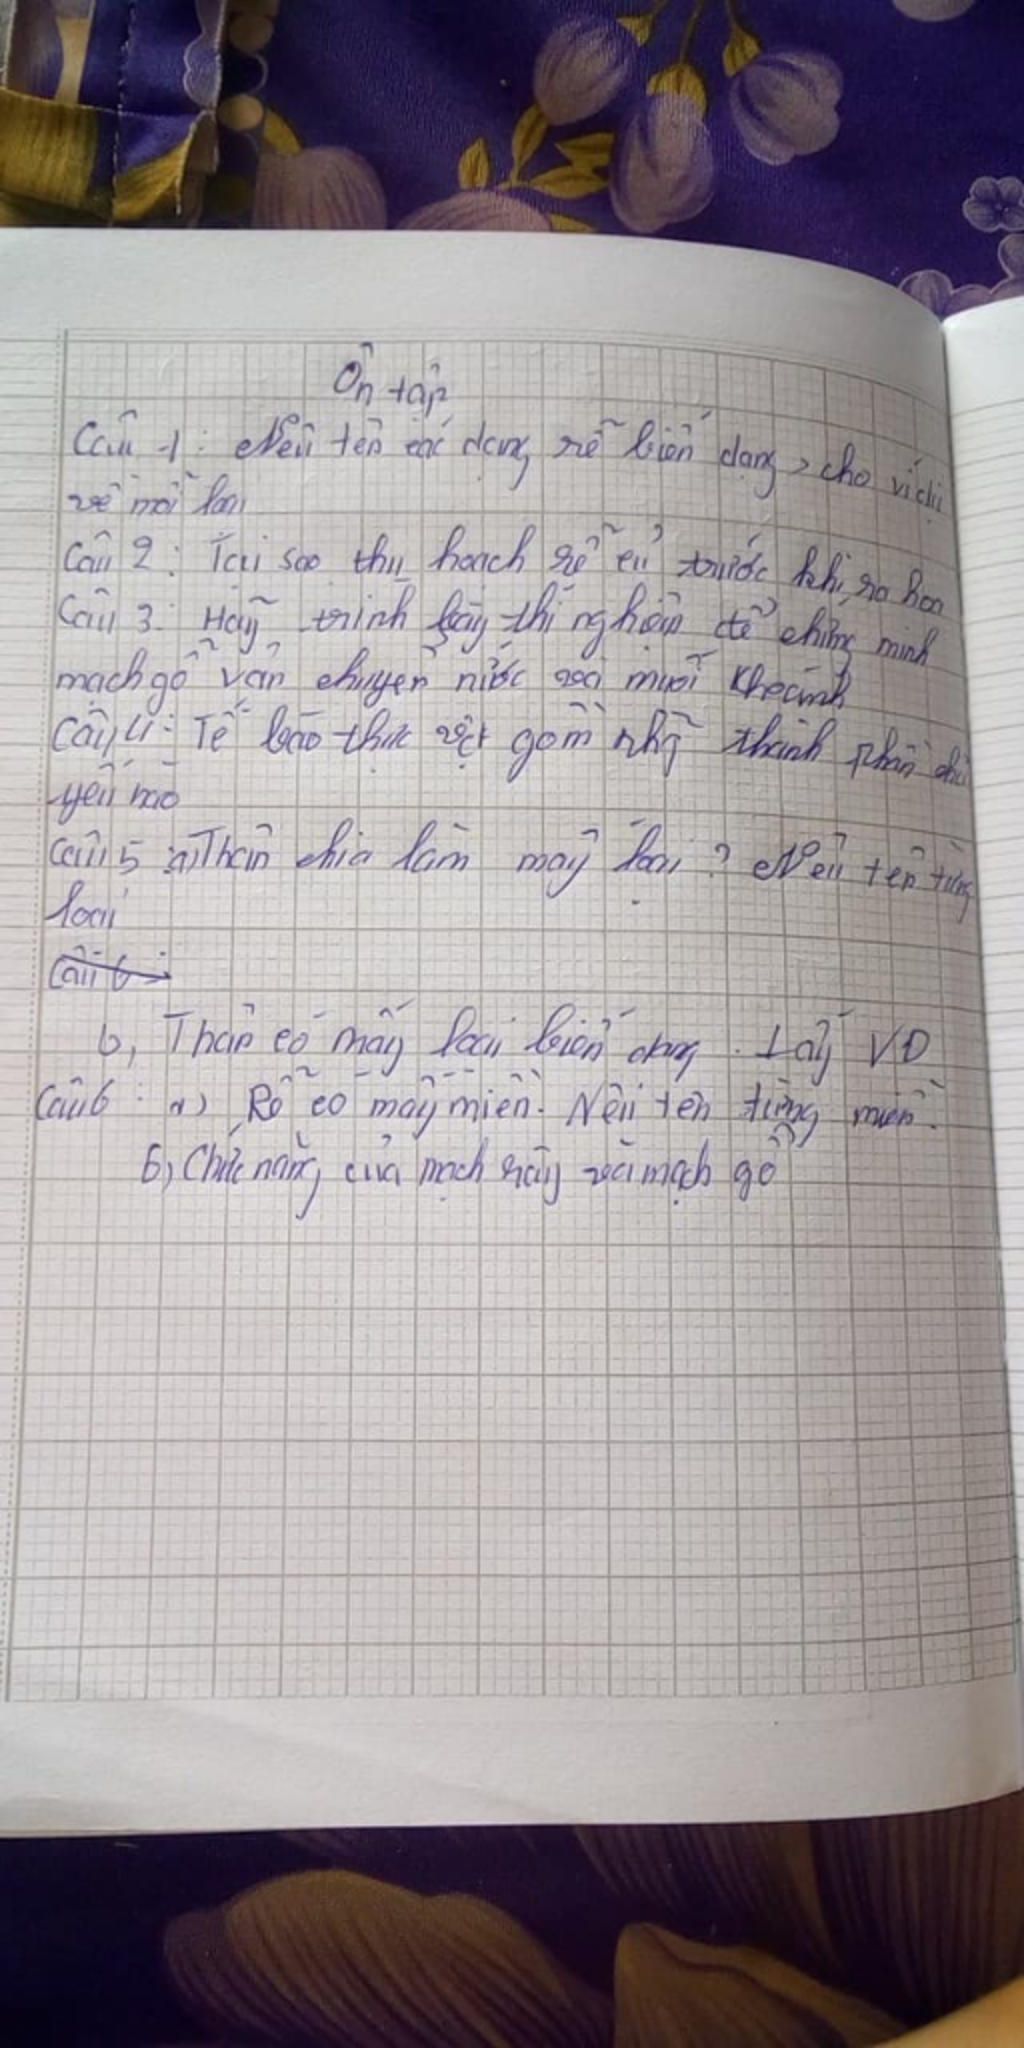 Ôn tập
Câu 1: Nêu tên các dạng rễ biến dạng, cho ví dụ
về mỗi loại
Câu 2: Tại sao thu hoạch rễ củ trước khi ra hoa
Câu 3: Hãy trình bày thí nghiệm để chứng minh
mạch gỗ vận chuyển nước và muối khoánh
Câu 4: Tế bào thực vật gồm nhữ thành phần chủ
yếu nào
Câu 5 a) Thân chia làm mấy loại? Nêu tên từng
loại
Câu 6:
b, Thân có mấy loại biến dạng. Lấy VD
Câu 6: a) Rễ có mấy miền. Nêu tên từng miền.
b) Chức năng của mạch rây và mạch gỗ